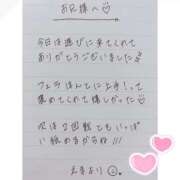 お兄様へ♡
今日は遊びに来てくれて
ありがとうございました
フェラほんとに上手！って
褒めてくれて嬉しかった♡
次は2回戦でもいっぱ
い絞めますからね!!!
より